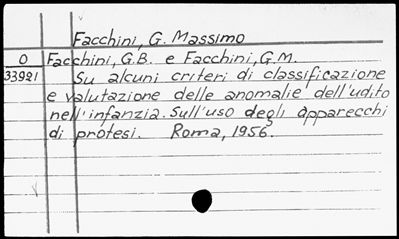 Facchini, G. Massimo
O Facchini, G.B. e Facchini, G.M.
33921 Su alcuni criteri di classificazione
e valutazione delle anomalie dell'udito
nell'infanzia. Sull'uso degli apparecchi
di protesi. Roma, 1956.